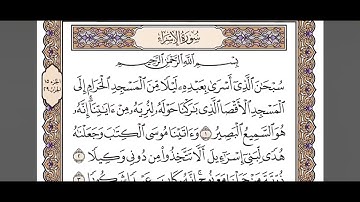 سُورَةُ الإِسْرَاءِ
بِسْمِ اللَّهِ الرَّحْمَٰنِ الرَّحِيمِ
سُبْحَٰنَ الَّذِي أَسْرَىٰ بِعَبْدِهِ لَيْلًا مِّنَ الْمَسْجِدِ الْحَرَامِ إِلَى
الْمَسْجِدِ الْأَقْصَا الَّذِي بَٰرَكْنَا حَوْلَهُ لِنُرِيَهُ مِنْ ءَايَٰتِنَا إِنَّهُ
هُوَ السَّمِيعُ الْبَصِيرُ ١ وَءَاتَيْنَا مُوسَى الْكِتَٰبَ وَجَعَلْنَٰهُ
هُدًى لِّبَنِي إِسْرَٰٓءِيلَ أَلَّا تَتَّخِذُوا مِن دُونِي وَكِيلًا ٢